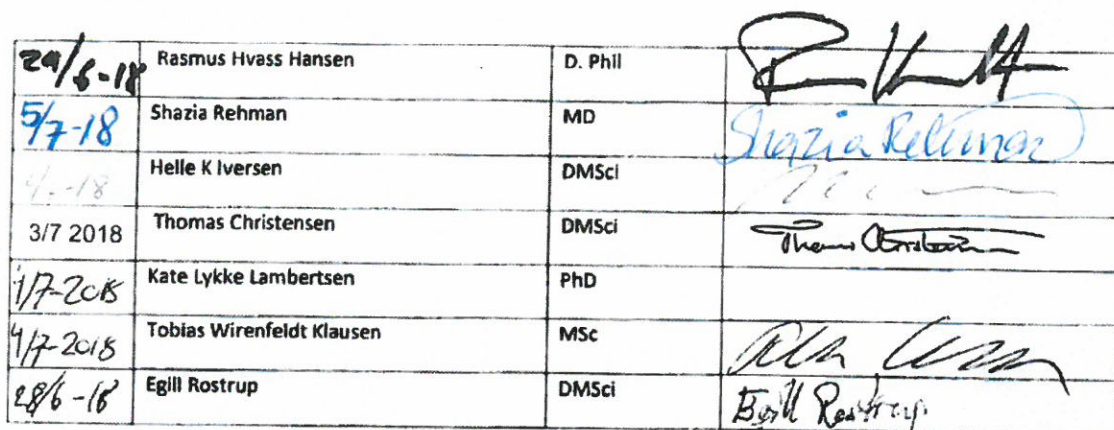 29/6-18 Rasmus Hvass Hansen D. Phil
5/7-18 Shazia Rehman MD Shazia Rehman
Helle K Iversen DMSci
3/7 2018 Thomas Christensen DMSci Thomas Christensen
Kate Lykke Lambertsen PhD
4/7-2018 Tobias Wirenfeldt Klausen MSc
28/6-18 Egill Rostrup DMSci Egill Rostrup